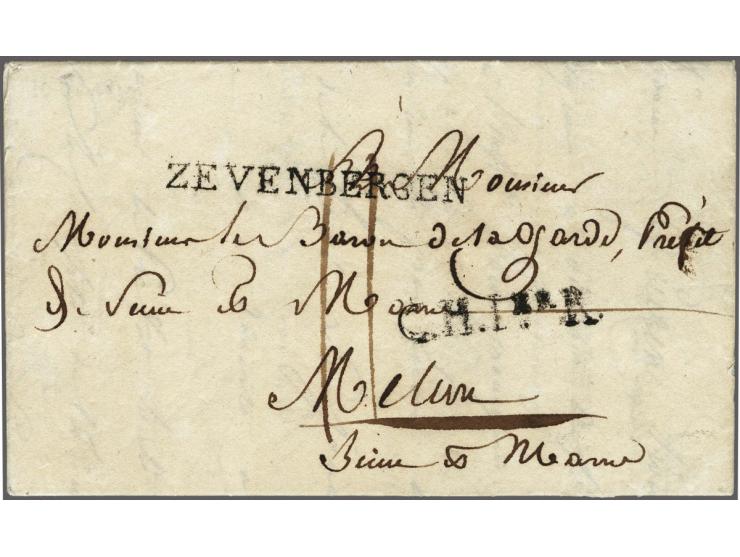 ZEVENBERGEN
A Monsieur
Monsieur le Baron de la Garde, Préfet
de Seine & Marne
C.H. Iere R.
Melun
Seine & Marne